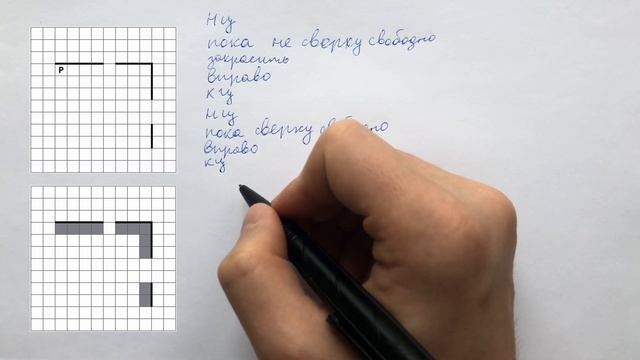 Р
нц
пока не сверху свободно
закрасить
вправо
кц
нц
пока сверху свободно
вправо
кц